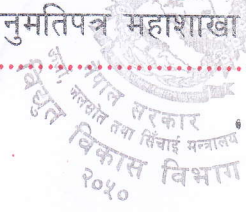 नुमतिपत्र महाशाखा
नेपाल सरकार
ऊर्जा, जलस्रोत तथा सिँचाई मन्त्रालय
विद्युत विकास विभाग
२०५०